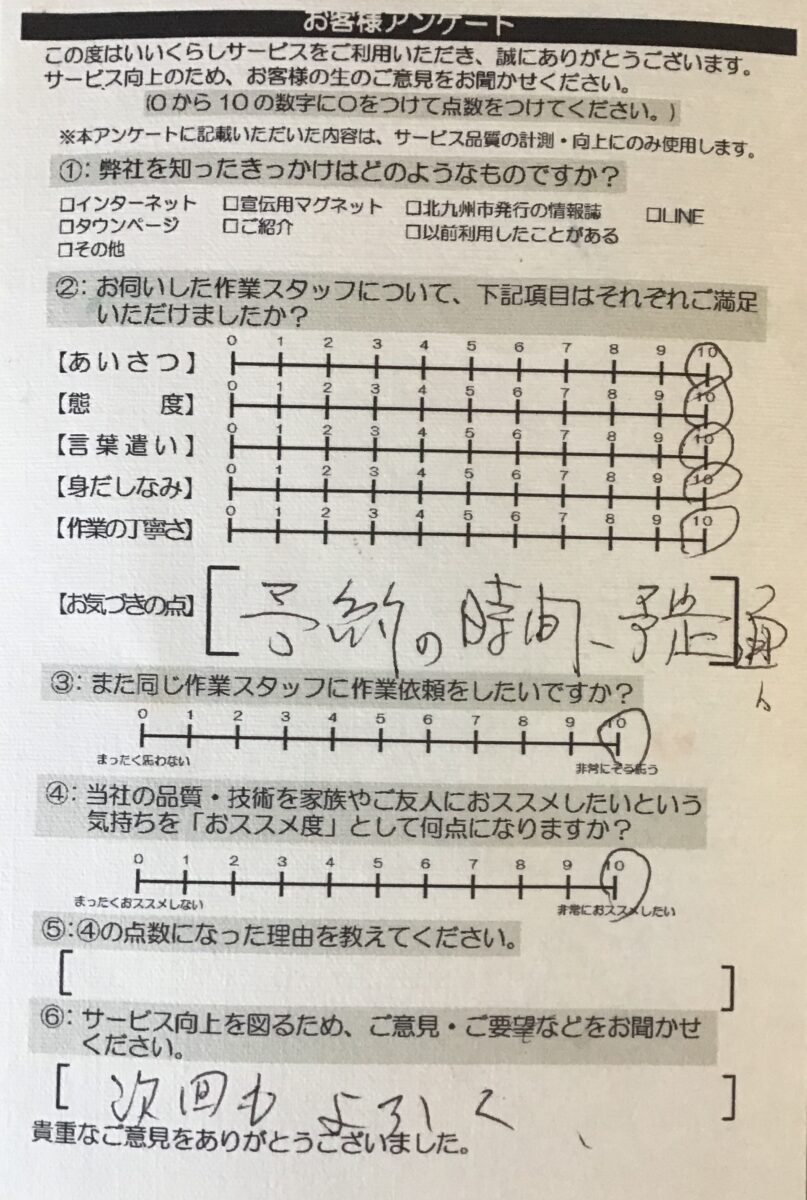 お客様アンケート
この度はいいくらしサービスをご利用いただき、誠にありがとうございます。
サービス向上のため、お客様の生のご意見をお聞かせください。
(0から10の数字に○をつけて点数をつけてください。)
※本アンケートに記載いただいた内容は、サービス品質の計測・向上にのみ使用します。
①:弊社を知ったきっかけはどのようなものですか?
□インターネット □宣伝用マグネット □北九州市発行の情報誌 □LINE
□タウンページ □ご紹介 □以前利用したことがある
□その他
②:お伺いした作業スタッフについて、下記項目はそれぞれご満足
いただけましたか?
【あいさつ】 0 1 2 3 4 5 6 7 8 9 10
【態度】 0 1 2 3 4 5 6 7 8 9 10
【言葉遣い】 0 1 2 3 4 5 6 7 8 9 10
【身だしなみ】 0 1 2 3 4 5 6 7 8 9 10
【作業の丁寧さ】 0 1 2 3 4 5 6 7 8 9 10
【お気づきの点】 [予約の時間、予定]通り
③:また同じ作業スタッフに作業依頼をしたいですか?
0 1 2 3 4 5 6 7 8 9 10
まったく思わない 非常にそう思う
④:当社の品質・技術を家族やご友人におススメしたいという
気持ちを「おススメ度」として何点になりますか?
0 1 2 3 4 5 6 7 8 9 10
まったくおススメしない 非常におススメしたい
⑤:④の点数になった理由を教えてください。
[ ]
⑥:サービス向上を図るため、ご意見・ご要望などをお聞かせ
ください。
[次回もよろしく、]
貴重なご意見をありがとうございました。